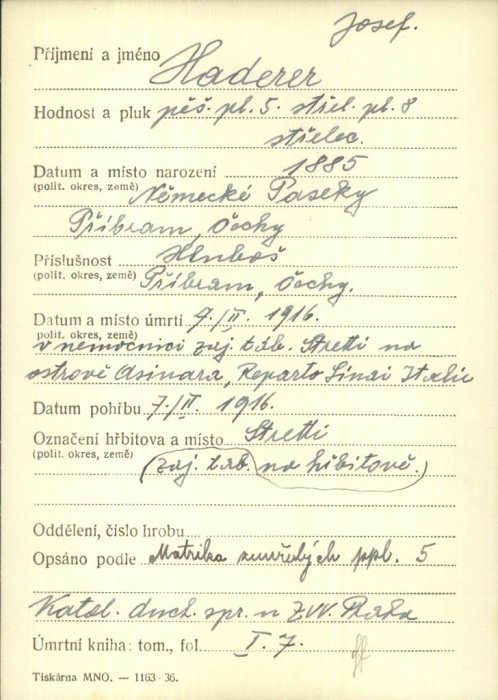 Josef.
Příjmení a jméno Haderer
Hodnost a pluk pěš. pl. 5. střel. pl. 8
střelec.
Datum a místo narození 1885
(polit. okres, země) Německé Paseky
Příbram, Čechy
Příslušnost Hluboš
(polit. okres, země) Příbram, Čechy.
Datum a místo úmrtí 7./II. 1916.
(polit. okres, země)
v nemocnici zaj. táb. Stretti na
ostrově Asinara, Reparto Sinai Italie
Datum pohřbu 7./II. 1916.
Označení hřbitova a místo Stretti
(polit. okres, země)
(zaj. táb. na hřbitově.)
Oddělení, číslo hrobu
Opsáno podle Matrika zemřelých ppl. 5
Katol. duch. spr. u ZVV. Praha
Úmrtní kniha: tom., fol. I. 7.
Tiskárna MNO. — 1163-36.